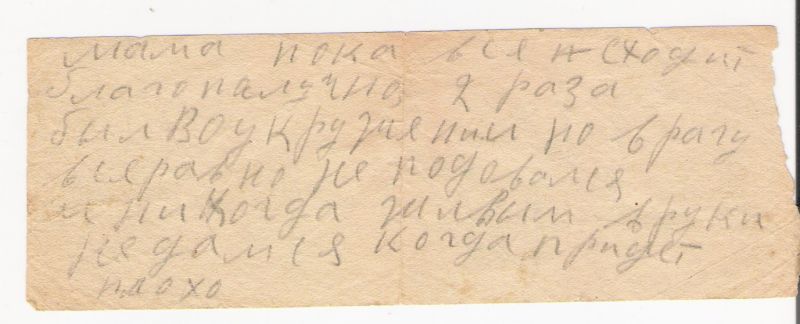 мама пока вся исходит
благопалучно, 2 раза
был воукружении но врагу
всяравно не подовался
и никогда живым вруки
недамся когда придет
плохо